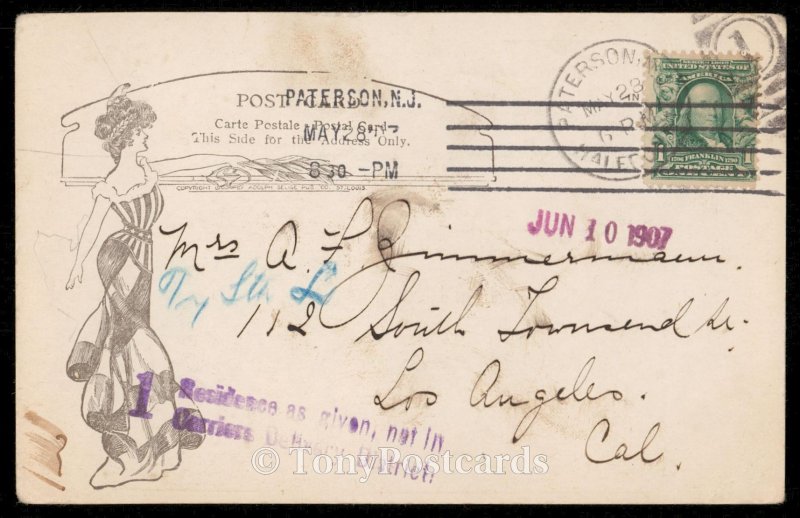 POST CARD
Carte Postale - Postal Card
This Side for the Address Only.
COPYRIGHT ADOLPH SELIGE PUB. CO. ST. LOUIS.
PATERSON, N.J.
MAY 28 '07
8 30 -PM
PATERSON, N.J.
MAY 28
6 P.M.
1
SERIES OF 1902
UNITED STATES OF
AMERICA
1
1706 FRANKLIN 1790
POSTAGE
JUN 10 1907
Mrs A. F. Zimmermann.
112 South Townsend St.
Los Angeles.
Cal.
1 Residence as given, not in
Carriers Delivery District
© TonyPostcards